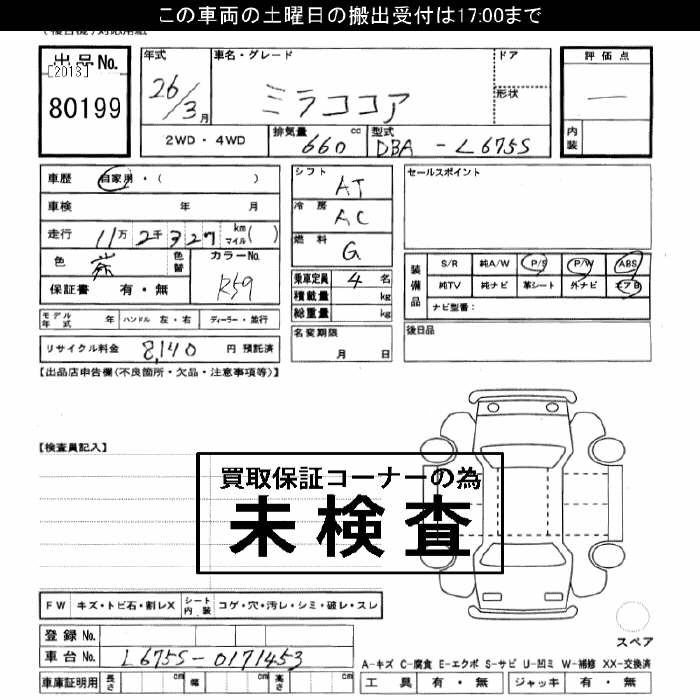 この車両の土曜日の搬出受付は17:00まで
出品No.
[2013]
80199
年式
26/3月
車名・グレード
ミラココア
ドア
形状
評価点
内装
2WD・4WD
排気量
660 cc
型式
DBA-L675S
車歴
自家用・( )
車検 年 月
走行 11万2千327 km マイル( )
色
色替
カラーNo.
R59
保証書 有・無
シフト
AT
冷房
AC
燃料
G
乗車定員 4 名
積載量 kg
総重量 kg
セールスポイント
装備品
S/R 純A/W P/S P/W ABS
純TV 純ナビ 革シート 外ナビ エアB
ナビ型番：
モデル年式 年 ハンドル 左・右 ディーラー・並行
名変期限
月 日
後日品
リサイクル料金 8,140 円 預託済
【出品店申告欄(不良箇所・欠品・注意事項等)】
【検査員記入】
買取保証コーナーの為
未検査
FW キズ・トビ石・割レX シート内装 コゲ・穴・汚レ・シミ・破レ・スレ
登録No.
車台No. L675S-0171453
車庫証明用 長さ cm 幅 cm 高さ cm
スペア
A-キズ C-腐食 E-エクボ S-サビ U-凹ミ W-補修 XX-交換済
工具 有・無 ジャッキ 有・無